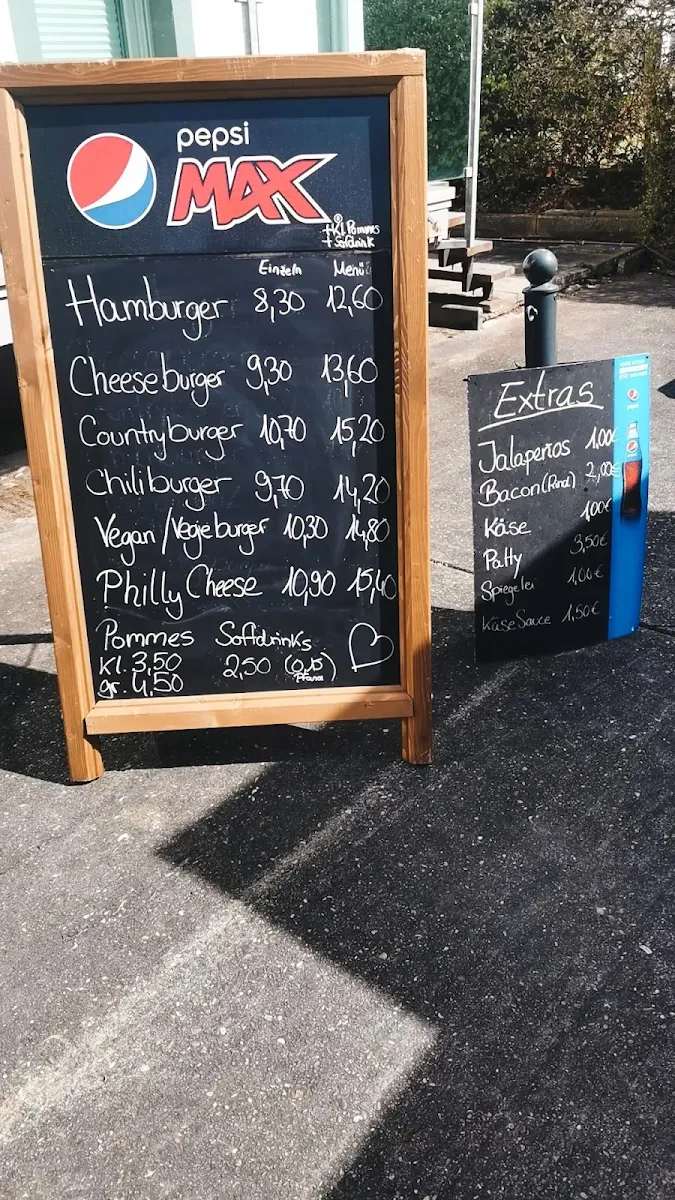 pepsi
MAX
+Kl. Pommes
+ Softdrink
Einzeln Menü
Hamburger 8,30 12,60
Cheeseburger 9,30 13,60
Countryburger 10,70 15,20
Chiliburger 9,70 14,20
Vegan/Vegieburger 10,30 14,80
Philly Cheese 10,90 15,40
Pommes Softdrinks
Kl. 3,50 2,50 (0,15
gr. 4,50 Pfand)
Extras
Jalapeños 1,00€
Bacon (Rind) 2,00€
Käse 1,00€
Patty 3,50€
Spiegelei 1,00€
Käse Sauce 1,50€